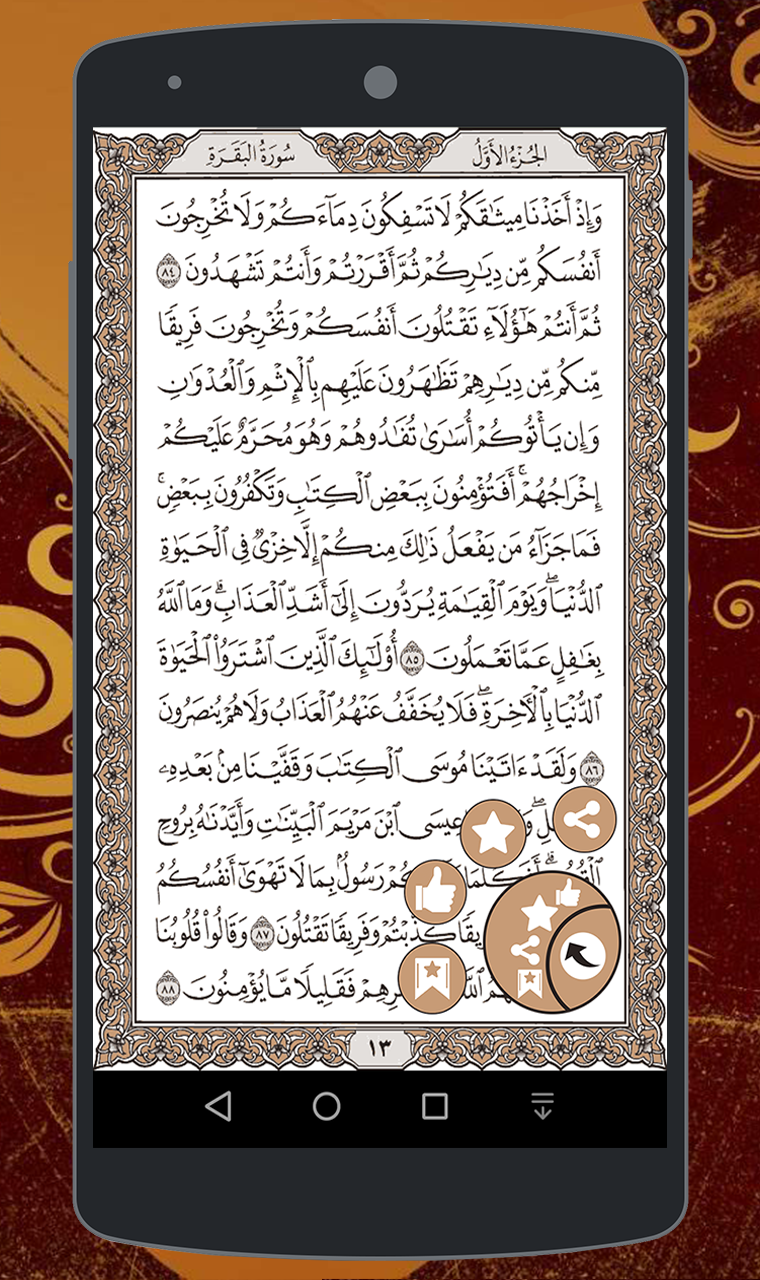 سُورَةُ البَقَرَةِ
الجُزْءُ الأَوَّلُ
وَإِذْ أَخَذْنَا مِيثَٰقَكُمْ لَا تَسْفِكُونَ دِمَآءَكُمْ وَلَا تُخْرِجُونَ
أَنفُسَكُم مِّن دِيَٰرِكُمْ ثُمَّ أَقْرَرْتُمْ وَأَنتُمْ تَشْهَدُونَ ٨٤
ثُمَّ أَنتُمْ هَٰٓؤُلَآءِ تَقْتُلُونَ أَنفُسَكُمْ وَتُخْرِجُونَ فَرِيقًا
مِّنكُم مِّن دِيَٰرِهِمْ تَظَٰهَرُونَ عَلَيْهِم بِٱلْإِثْمِ وَٱلْعُدْوَٰنِ
وَإِن يَأْتُوكُمْ أُسَٰرَىٰ تُفَٰدُوهُمْ وَهُوَ مُحَرَّمٌ عَلَيْكُمْ
إِخْرَاجُهُمْ ۚ أَفَتُؤْمِنُونَ بِبَعْضِ ٱلْكِتَٰبِ وَتَكْفُرُونَ بِبَعْضٍ ۚ
فَمَا جَزَآءُ مَن يَفْعَلُ ذَٰلِكَ مِنكُمْ إِلَّا خِزْىٌ فِى ٱلْحَيَوٰةِ
ٱلدُّنْيَا ۖ وَيَوْمَ ٱلْقِيَٰمَةِ يُرَدُّونَ إِلَىٰٓ أَشَدِّ ٱلْعَذَابِ ۗ وَمَا ٱللَّهُ
بِغَٰفِلٍ عَمَّا تَعْمَلُونَ ٨٥ أُو۟لَٰٓئِكَ ٱلَّذِينَ ٱشْتَرَوُا۟ ٱلْحَيَوٰةَ
ٱلدُّنْيَا بِٱلْأَخِرَةِ ۖ فَلَا يُخَفَّفُ عَنْهُمُ ٱلْعَذَابُ وَلَا هُمْ يُنصَرُونَ
٨٦ وَلَقَدْ ءَاتَيْنَا مُوسَى ٱلْكِتَٰبَ وَقَفَّيْنَا مِنۢ بَعْدِهِۦ
عِيسَى ٱبْنَ مَرْيَمَ ٱلْبَيِّنَٰتِ وَأَيَّدْنَٰهُ بِرُوحِ
أَفَكُلَّمَا رَسُولٌۢ بِمَا لَا تَهْوَىٰٓ أَنفُسُكُمُ
كَذَّبْتُمْ وَفَرِيقًا تَقْتُلُونَ ٨٧ وَقَالُوا۟ قُلُوبُنَا
فَقَلِيلًا مَّا يُؤْمِنُونَ ٨٨
١٣